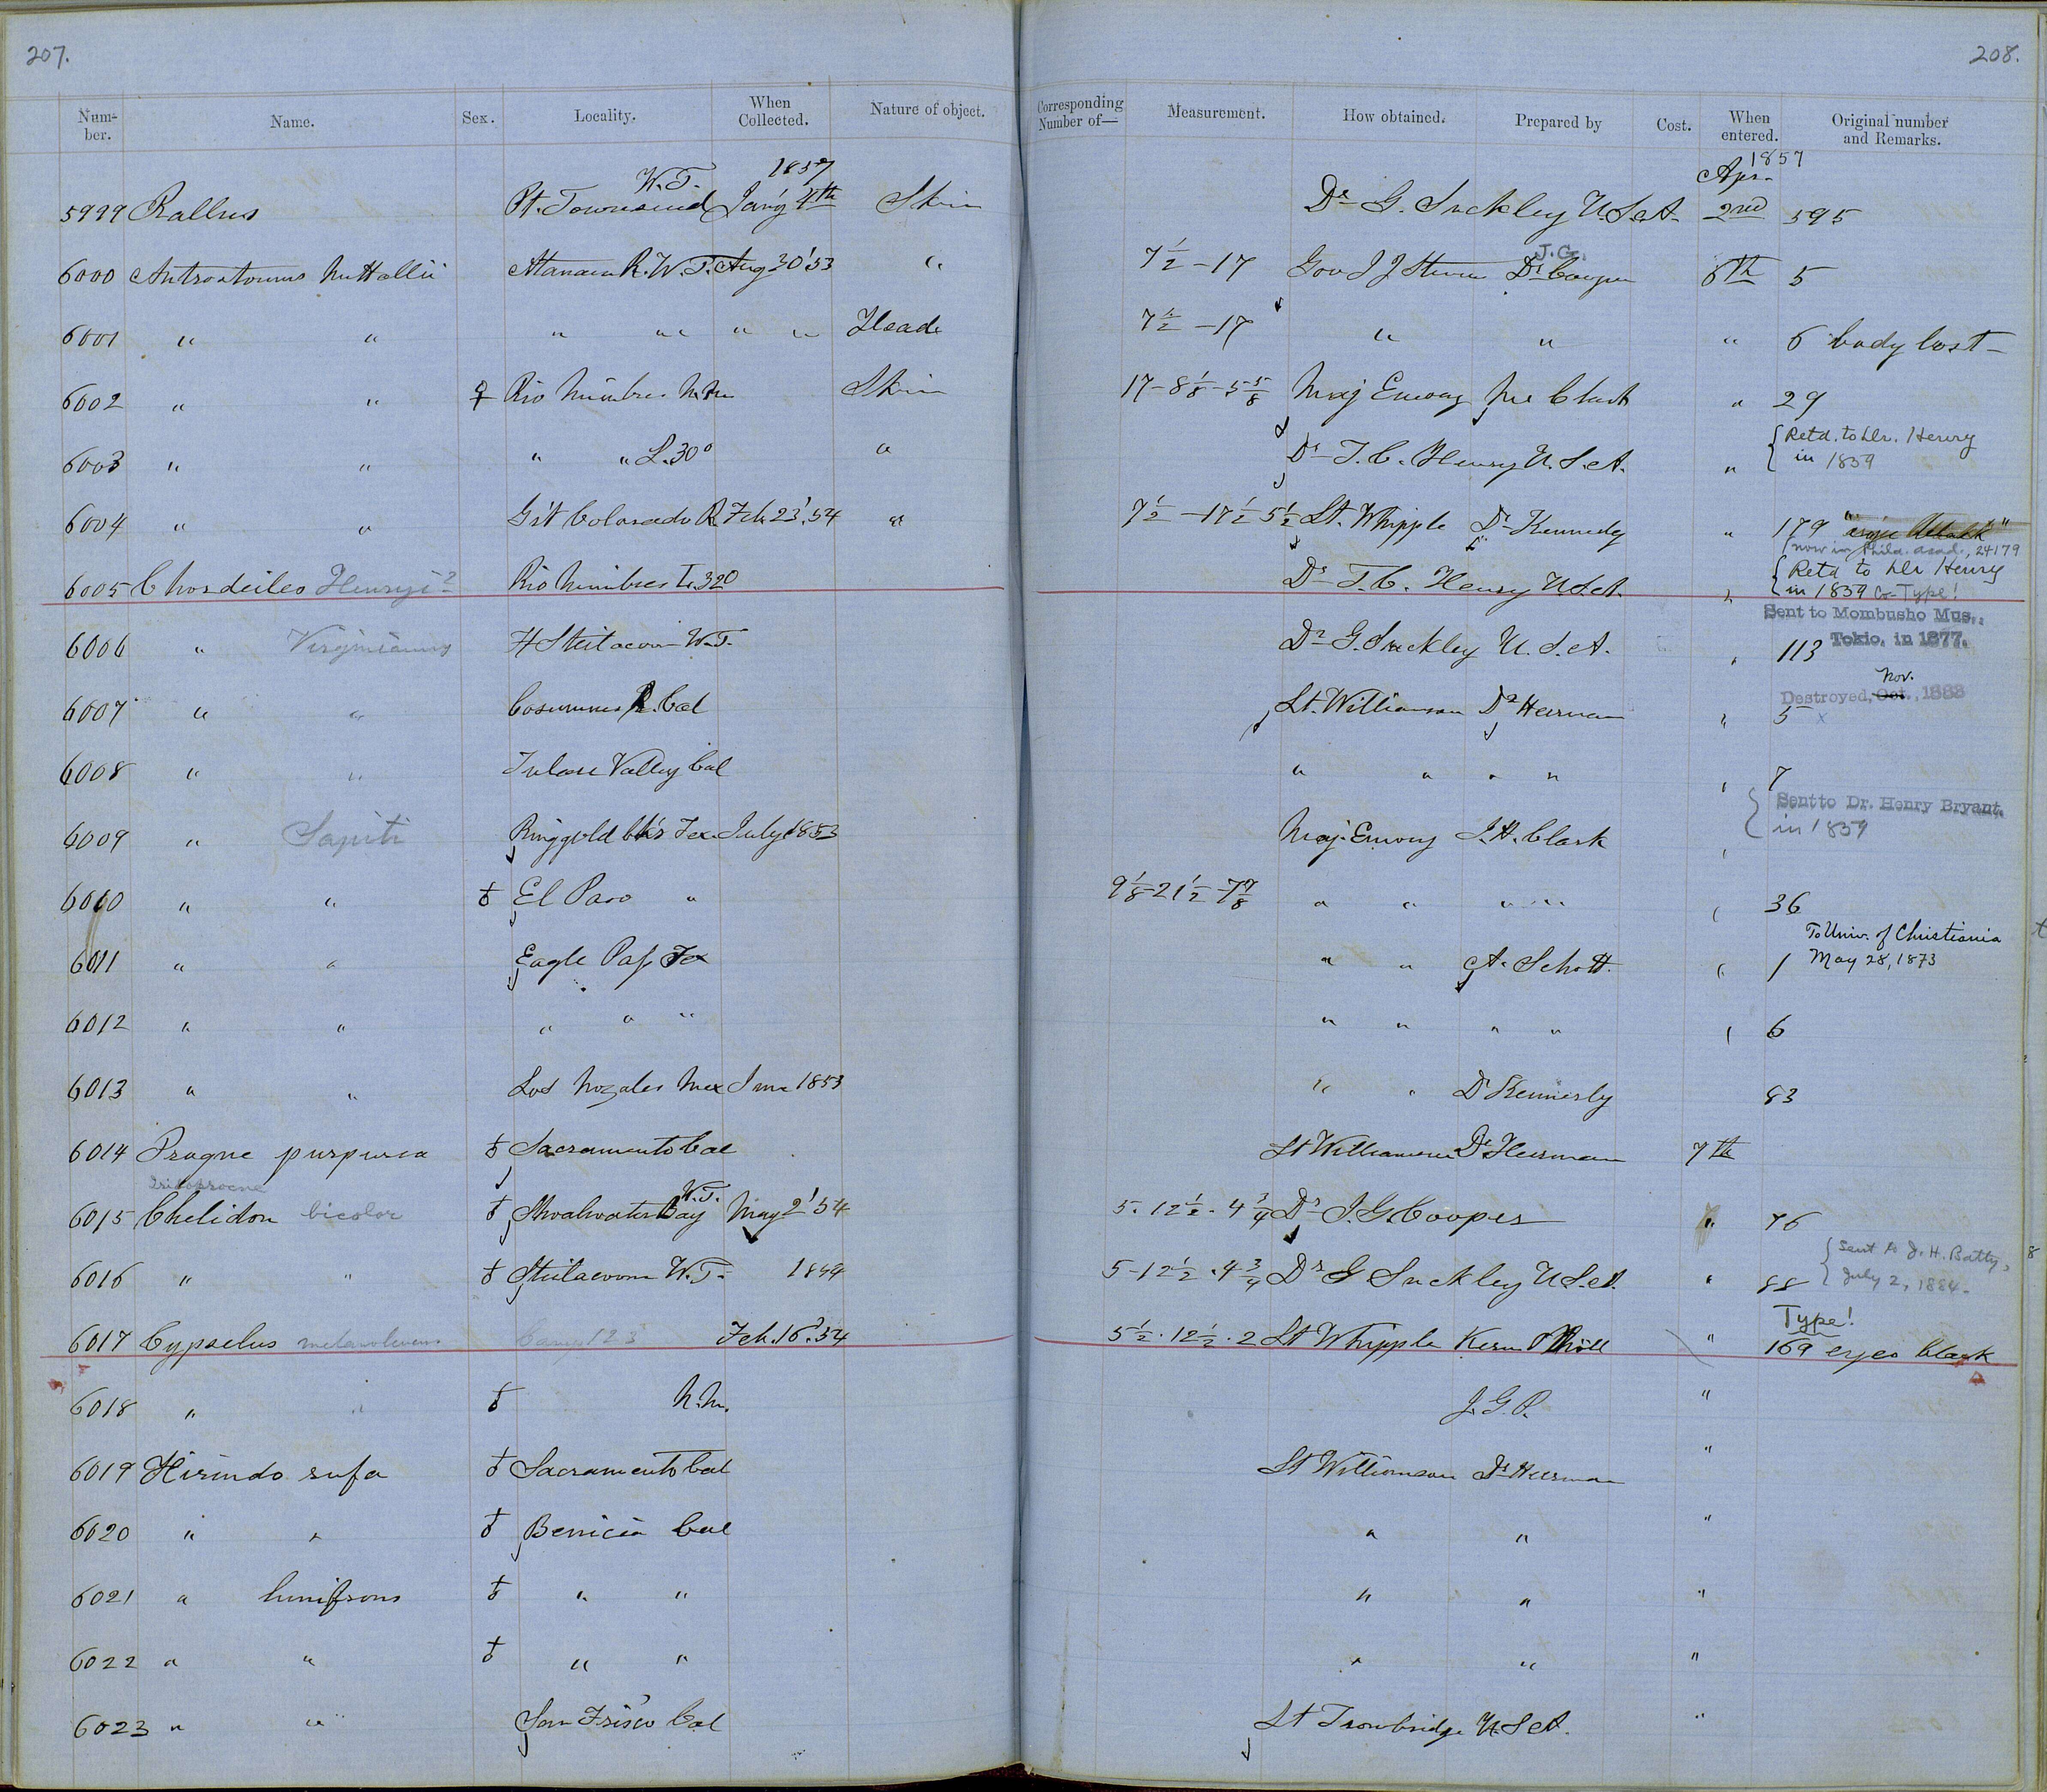 207.
208.
Num-ber. Name. Sex. Locality. When Collected. Nature of object. Corresponding Number of— Measurement. How obtained. Prepared by Cost. When entered. Original number and Remarks.
W.T. 1857 Apr. 1857
5999 Rallus Pt. Townsend Jan'y 4th Skin Dr G. Suckley U.S.A. 2nd 595
J.G.
6000 Antrostomus Nuttallii Atanam R. W.T. Aug 30' 53 " 7 1/2 - 17 Gov I I Stevens Dr Cooper 6th 5
6001 " " " " " " Head 7 1/2 - 17 " " " 6 body lost
6002 " " ♀ Rio Mimbres N.M. Skin 17 - 8 1/8 - 5 5/8 Maj Emory Mr Clark " 29
6003 " " " " L. 30° " Dr T. C. Henry U.S.A. " { Retd. to Dr. Henry in 1859
6004 " " Gt Colorado R Feb. 23' 54 " 7 1/2 - 17 1/2 5 1/2 Lt. Whipple Dr Kennedy " 179
now in Phila. Acad., 24179
6005 Chordeiles Henryi? Rio Mimbres L. 32° Dr T. C. Henry U.S.A. " { Retd to Dr Henry in 1859 Co-Type!
Sent to Mombusho Mus., Tokio, in 1877.
6006 " Virginianus Ft Steilacoom W.T. Dr G. Suckley U.S.A. " 113
Nov.
Destroyed, Oct., 1883
6007 " " Cosumnes R. Cal Lt. Williamson Dr Heerman " 5 x
6008 " " Tulare Valley Cal " " " " " 7
{ Sent to Dr. Henry Bryant. in 1859
6009 " Sapiti Ringgold Bk's Tex. July 1853 Maj. Emory J. H. Clark "
6010 " " ♂ El Paso " 9 1/8 - 21 1/2 - 7 7/8 " " " " " 36
To Univ. of Christiania May 28, 1873
6011 " " Eagle Pass Tex " " A. Schott. " 1
6012 " " " " " " " " " " 6
6013 " " Los Nogales Mex June 1853 " " Dr Kennerly 83
6014 Progne purpurea ♂ Sacramento Cal Lt Williamson Dr Heerman 7th
Iridoprocne W.T.
6015 Chelidon bicolor ♂ Shoalwater Bay May 2' 54 5. 12 1/2. 4 3/4 Dr J. G. Cooper " 76
6016 " " ♂ Steilacoom W.T. 1854 5 - 12 1/2. 4 3/4 Dr G Suckley U.S.A. " 88 { Sent to J. H. Batty, July 2, 1884. 8
Type!
6017 Cypselus melanoleucus Camp 123 Feb. 16' 54 5 1/2. 12 1/2. 2 Lt Whipple Kern & Möll " 169 eyes black
6018 " " ♂ N.M. J. G. P. "
6019 Hirundo rufa ♂ Sacramento Cal Lt Williamson Dr Heerman "
6020 " " ♂ Benicia Cal " " "
6021 " lunifrons ♂ " " " " "
6022 " " ♂ " " " " "
6023 " " San Fris'co Cal Lt Trowbridge U.S.A. "